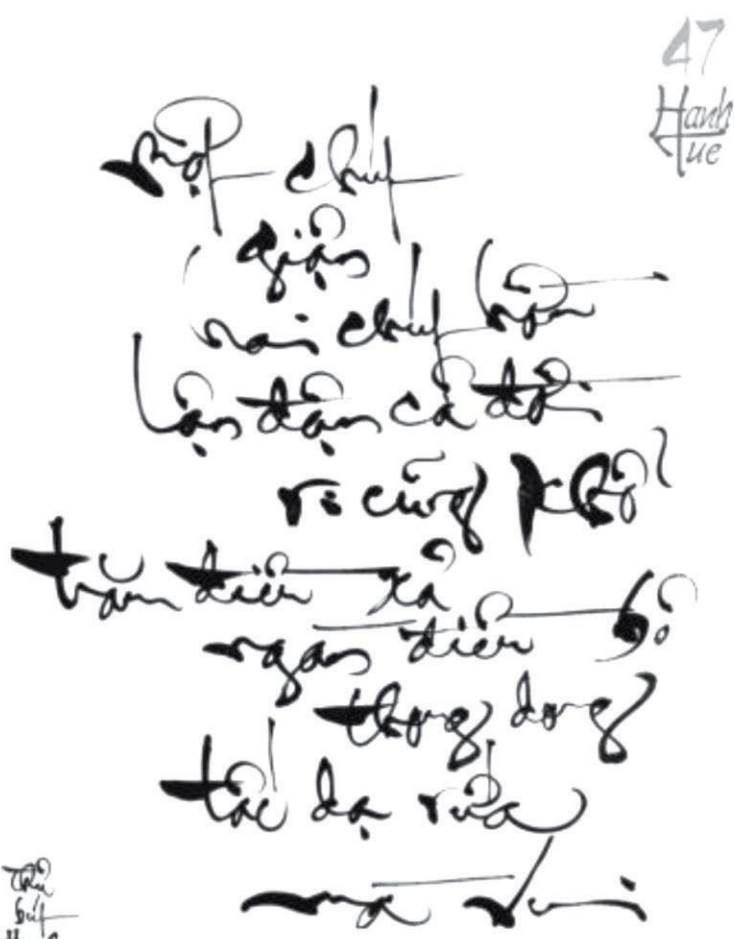 47
Hanh
Tue
Một chút
giận
hai chút hờn
lận đận cả đời
ri cũng khổ
trăm điều xả
ngàn điều bỏ
thong dong
tấc dạ rứa
mà vui
Thủ
bút